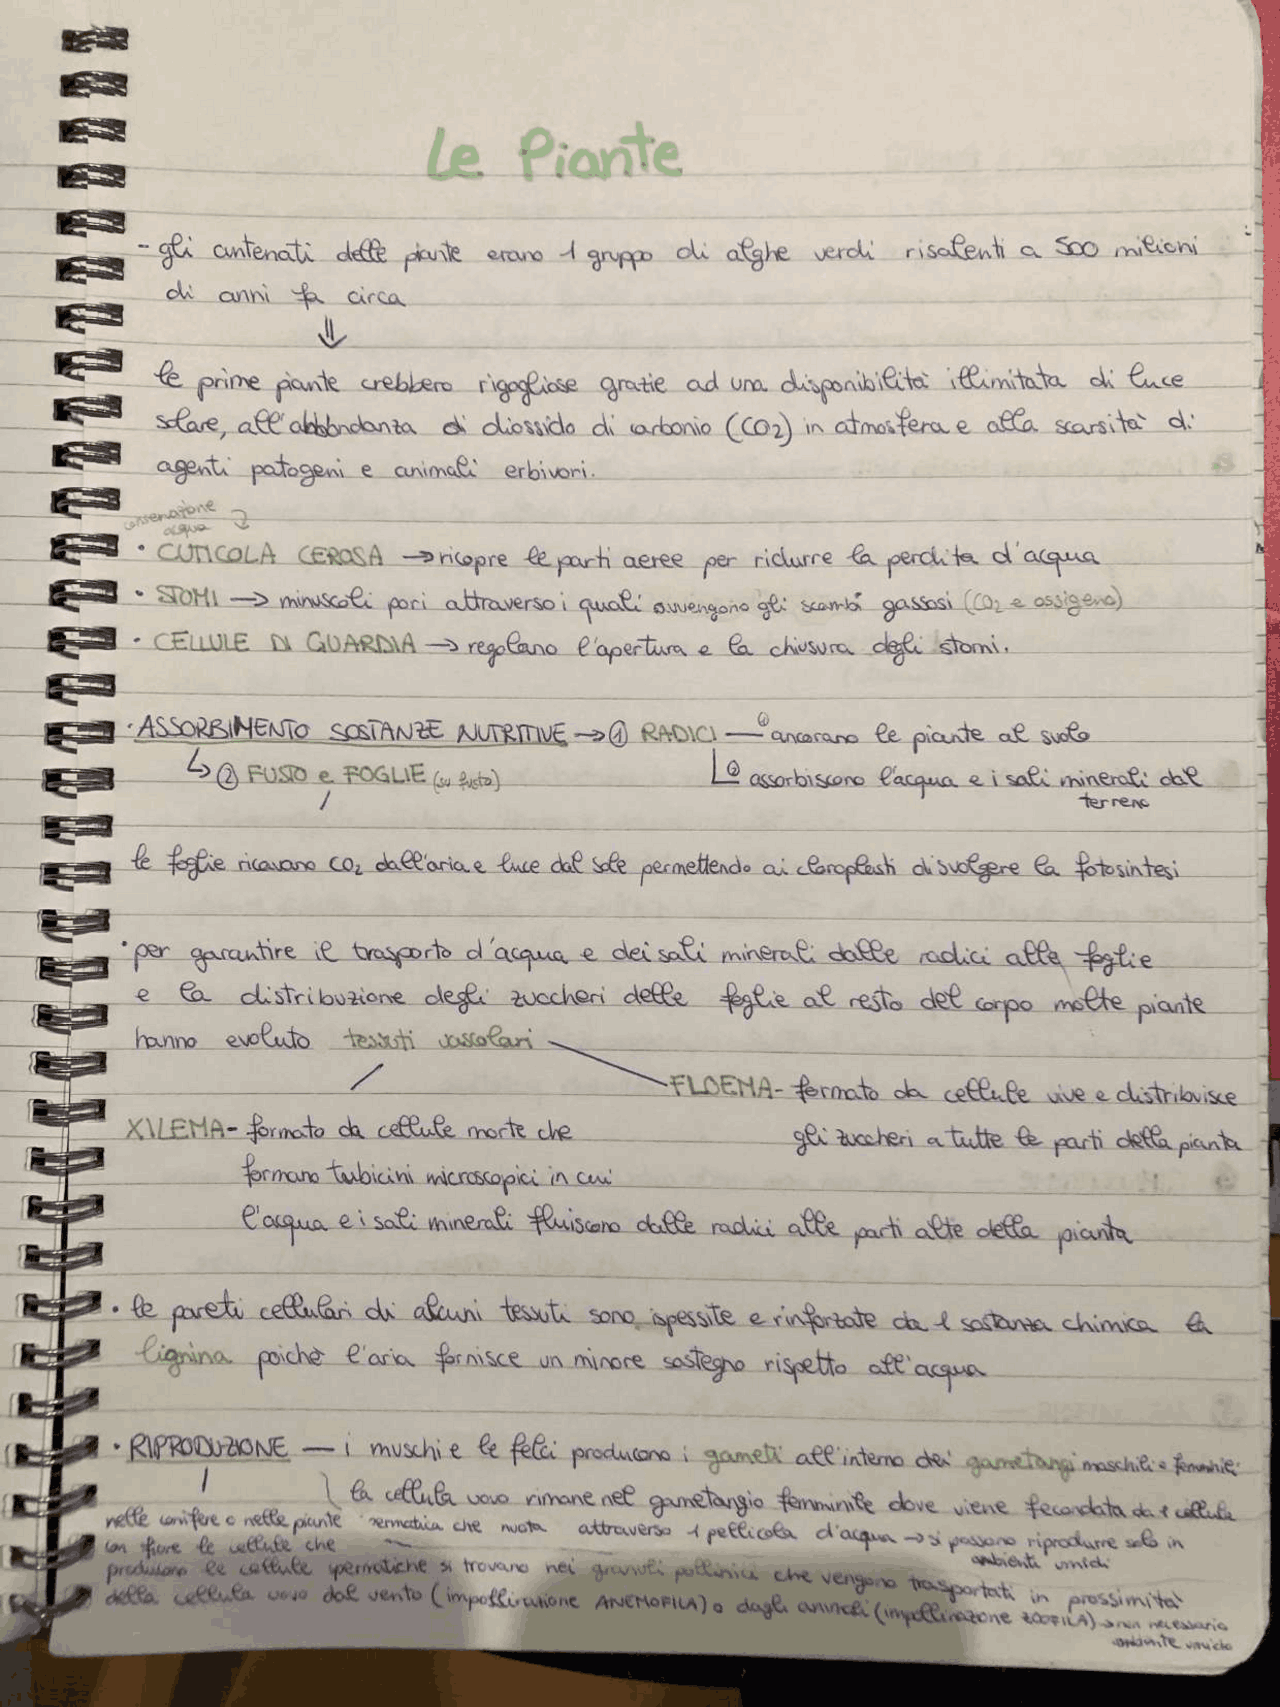 Le Piante
- gli antenati delle piante erano 1 gruppo di alghe verdi risalenti a 500 milioni
di anni fa circa
⇓
le prime piante crebbero rigogliose grazie ad una disponibilità illimitata di luce
solare, all'abbondanza di diossido di carbonio (CO2) in atmosfera e alla scarsità di
agenti patogeni e animali erbivori.
conservazione
acqua
• CUTICOLA CEROSA → ricopre le parti aeree per ridurre la perdita d'acqua
• STOMI → minuscoli pori attraverso i quali avvengono gli scambi gassosi (CO2 e ossigeno)
• CELLULE DI GUARDIA → regolano l'apertura e la chiusura degli stomi.
• ASSORBIMENTO SOSTANZE NUTRITIVE → ① RADICI — ① ancorano le piante al suolo
↳ ② FUSTO e FOGLIE (su fusto) ② assorbiscono l'acqua e i sali minerali dal
terreno
le foglie ricavano CO2 dall'aria e luce dal sole permettendo ai cloroplasti di svolgere la fotosintesi
• per garantire il trasporto d'acqua e dei sali minerali dalle radici alle foglie
e la distribuzione degli zuccheri delle foglie al resto del corpo molte piante
hanno evoluto tessuti vascolari
FLOEMA - formato da cellule vive e distribuisce
gli zuccheri a tutte le parti della pianta
XILEMA - formato da cellule morte che
formano tubicini microscopici in cui
l'acqua e i sali minerali fluiscono dalle radici alle parti alte della pianta
• le pareti cellulari di alcuni tessuti sono ispessite e rinforzate da 1 sostanza chimica la
lignina poichè l'aria fornisce un minore sostegno rispetto all'acqua
• RIPRODUZIONE — i muschi e le felci producono i gameti all'interno dei gametangi maschili e femminili
la cellula uovo rimane nel gametangio femminile dove viene fecondata da 1 cellula
spermatica che nuota attraverso 1 pellicola d'acqua → si possono riprodurre solo in
ambienti umidi
nelle conifere o nelle piante
con fiore le cellule che
producono le cellule spermatiche si trovano nei granuli pollinici che vengono trasportati in prossimità
della cellula uovo dal vento (impollinazione ANEMOFILA) o dagli animali (impollinazione ZOOFILA) → non necessario
ambiente umido